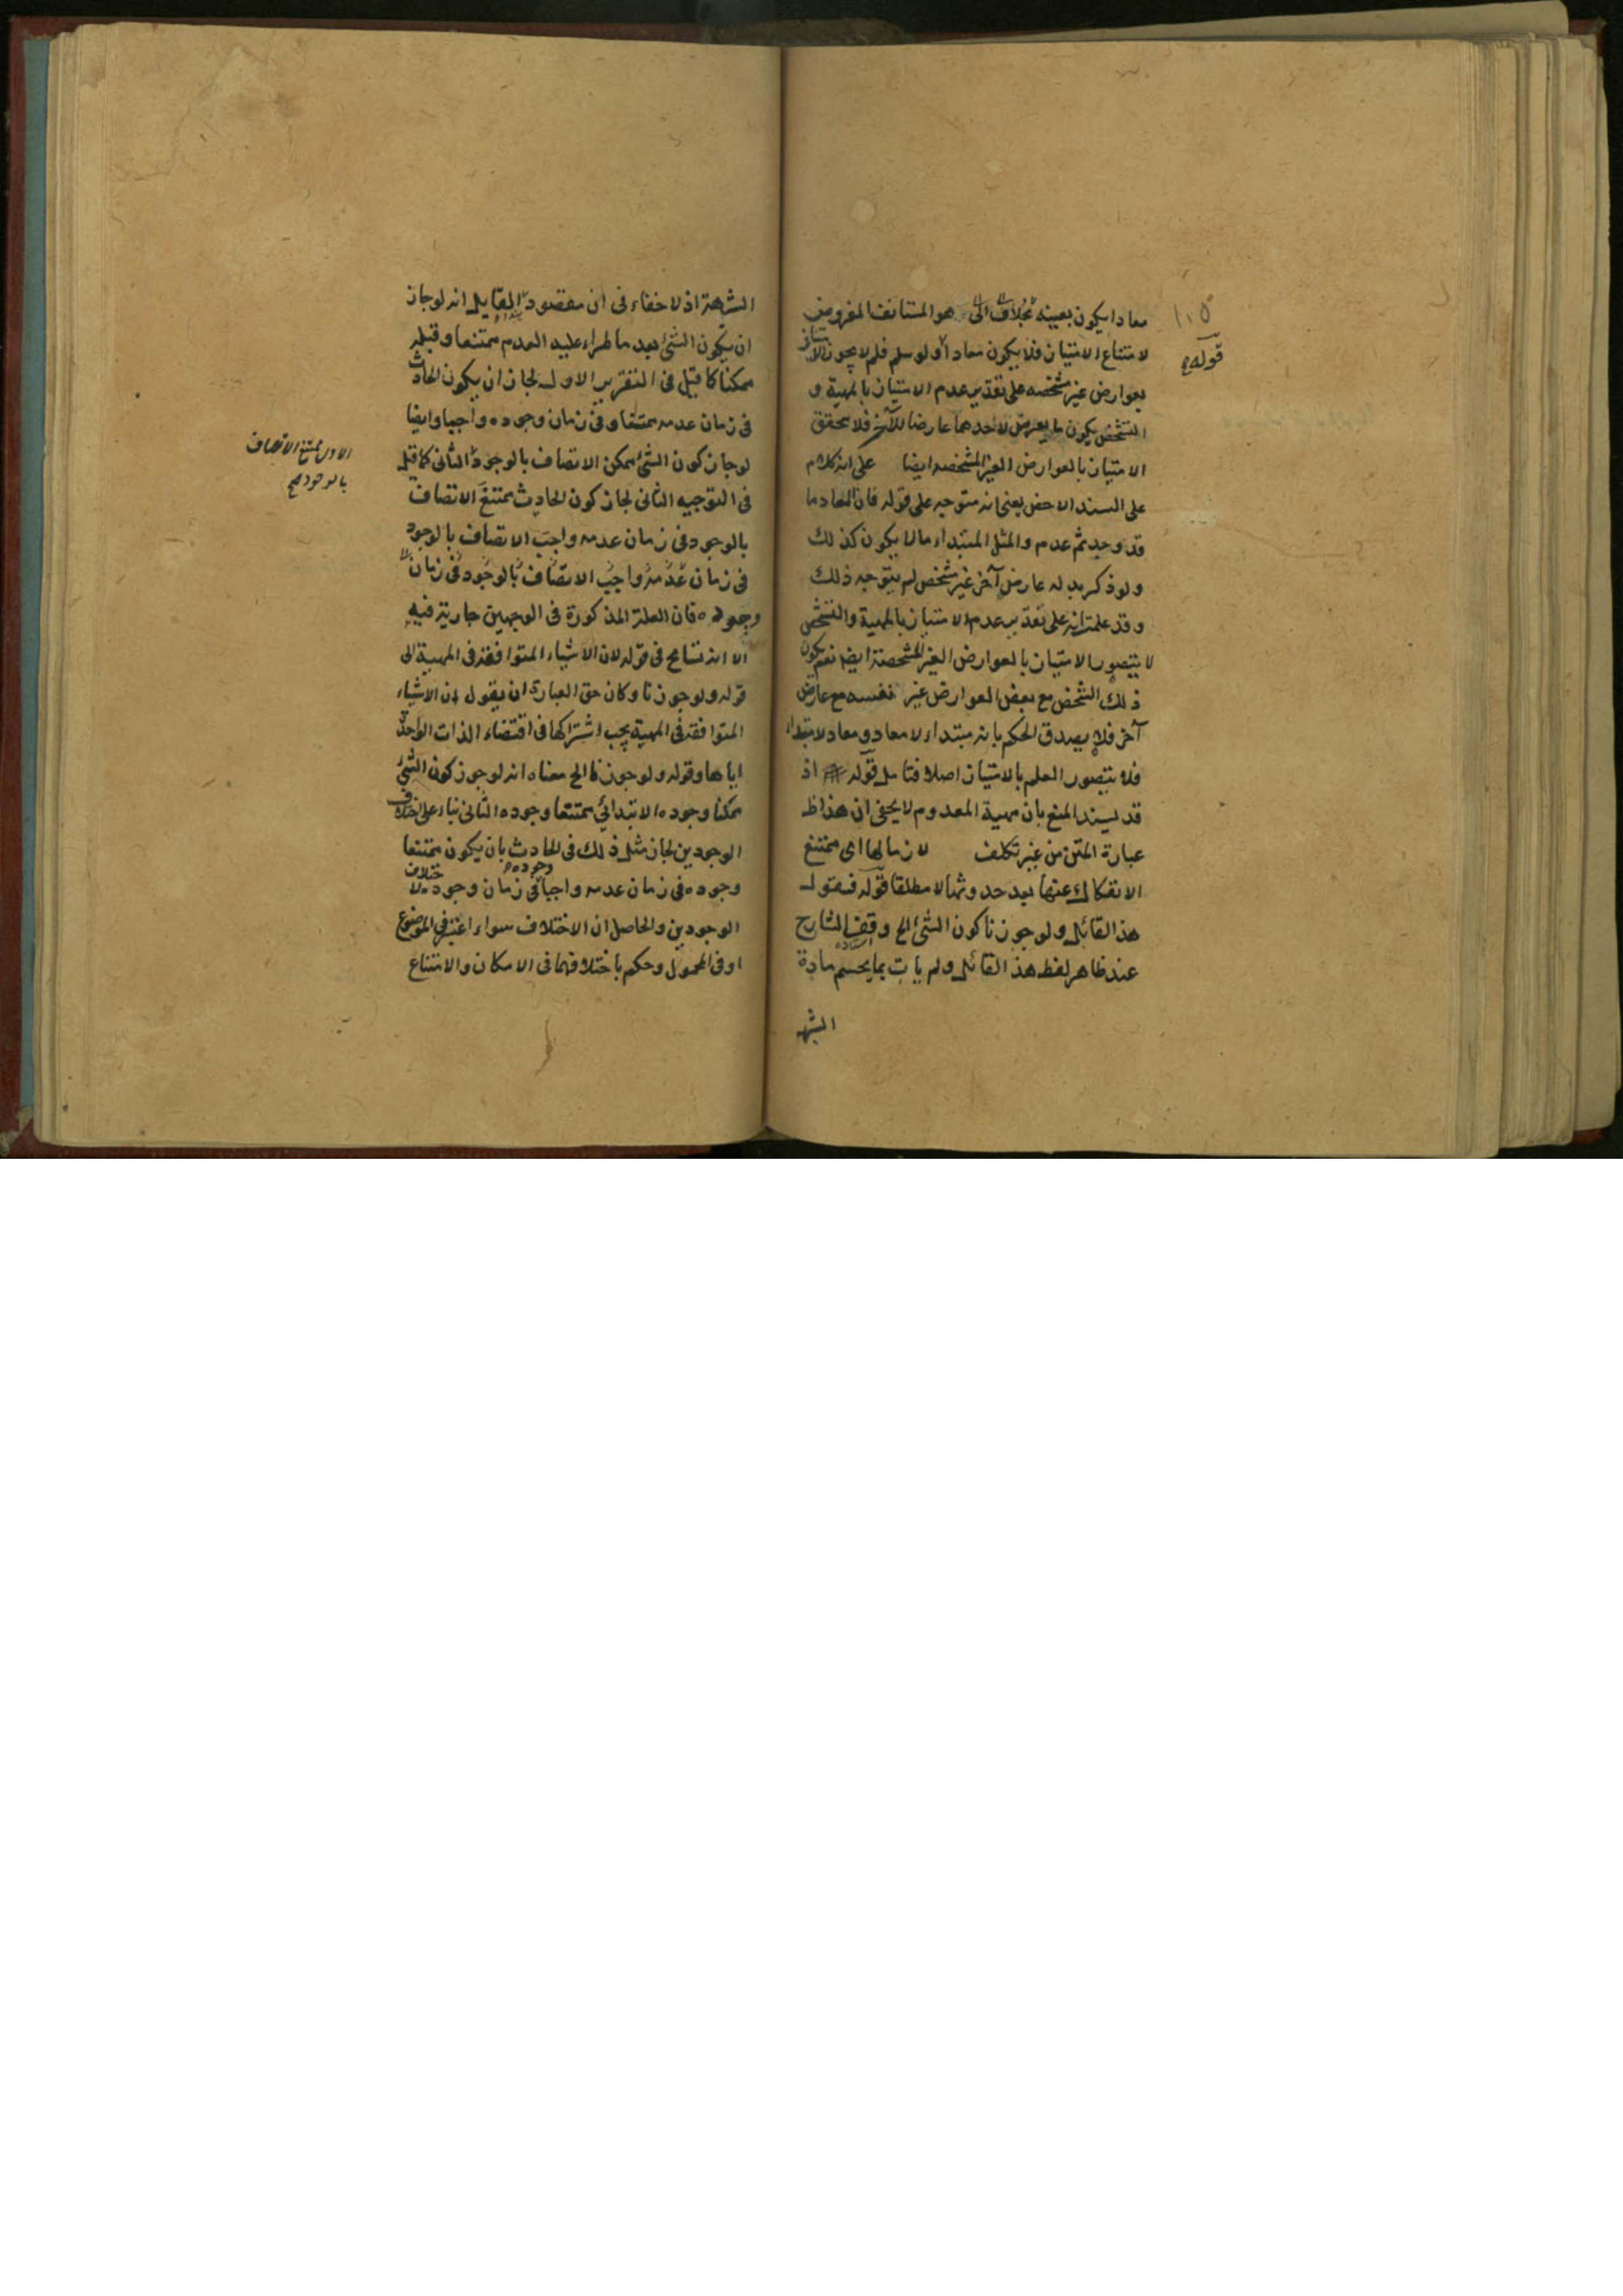 ١٠٥
قوله
معادا يكون بعينه هو المستانف المفروض
لامتناع الامتياز فلا يكون معادا ولو سلم فلم لا يجوز الامتياز
بعوارض غير مشخصه على تقدير عدم الامتياز بالمهية و
التشخص يكون ما يعرض لاحدهما عارضا للآخر فلا يحقق
الامتياز بالعوارض الغير المشخصه ايضا على انه كلام
على السند الاخص يعنى انه متوجه على قوله فان المعاد ما
قد وجد ثم عدم والمثل المبتداء مالا يكون كذلك
ولو ذكر بدله عارض آخر غير مشخص لم يتوجه ذلك
وقد علمت انه على تقدير عدم الامتياز بالمهية والتشخص
لا يتصور الامتياز بالعوارض الغير المشخصة ايضا نعم يكون
ذلك الشخص مع بعض العوارض غير نفسه مع عارض
آخر فلا يصدق الحكم بانه مبتداء لا معاد ومعاد لا مبتداء
فلا يتصور العلم بالامتياز اصلا فتامل قوله اذ
قد يسند المنع بان مهية المعدوم لا يخفى ان هذا ظ
عبارة المتن من غير تكلف لازمالها اى ممتنع
الانفكاك عنها بعد حدوثها لا مطلقا قوله فيقول
هذا القائل ولو جوزنا كون الشئ الخ وقف الشارح
عند ظاهر لفظ هذا القائل ولم يات بما يحسم مادة
الشبه
الشبهة اذ لا خفاء فى ان مقصود القايل انه لو جاز
ان يكون الشئ بعد ما طراء عليه العدم ممتنعا وقبله
ممكنا كما قيل فى التقرير الاول لجاز ان يكون الحادث
فى زمان عدمه ممتنعا وفى زمان وجوده واجبا وايضا
لو جاز كون الشئ ممكن الاتصاف بالوجود الثانى كما قيل
الاول ممتنع الاتصاف
بالوجود صح
فى التوجيه الثانى لجاز كون الحادث ممتنع الاتصاف
بالوجود فى زمان عدمه واجب الاتصاف بالوجود
فى زمان عدمه واجب الاتصاف بالوجود فى زمان
وجوده فان العلة المذكورة فى الوجهين جارية فيه
الا انه تسامح فى قوله لان الاشياء المتوافقة فى المهية الى
قوله ولو جوزنا وكان حق العبارة ان يقول ان الاشياء
المتوافقة فى المهية يجب اشتراكها فى اقتضاء الذات الواحدة
اياها وقوله ولو جوزنا الخ معناه انه لو جوز كون الشئ
ممكنا وجوده الابتدائي ممتنعا وجوده الثانى بناء على اختلاف
الوجودين لجاز مثل ذلك فى الحادث بان يكون ممتنعا
وجوده فى زمان عدمه واجبا وجوده فى زمان وجوده لاختلاف
الوجودين والحاصل ان الاختلاف سواء اعتبر فى الموضوع
او فى المحمول وحكم باختلافهما فى الامكان والامتناع